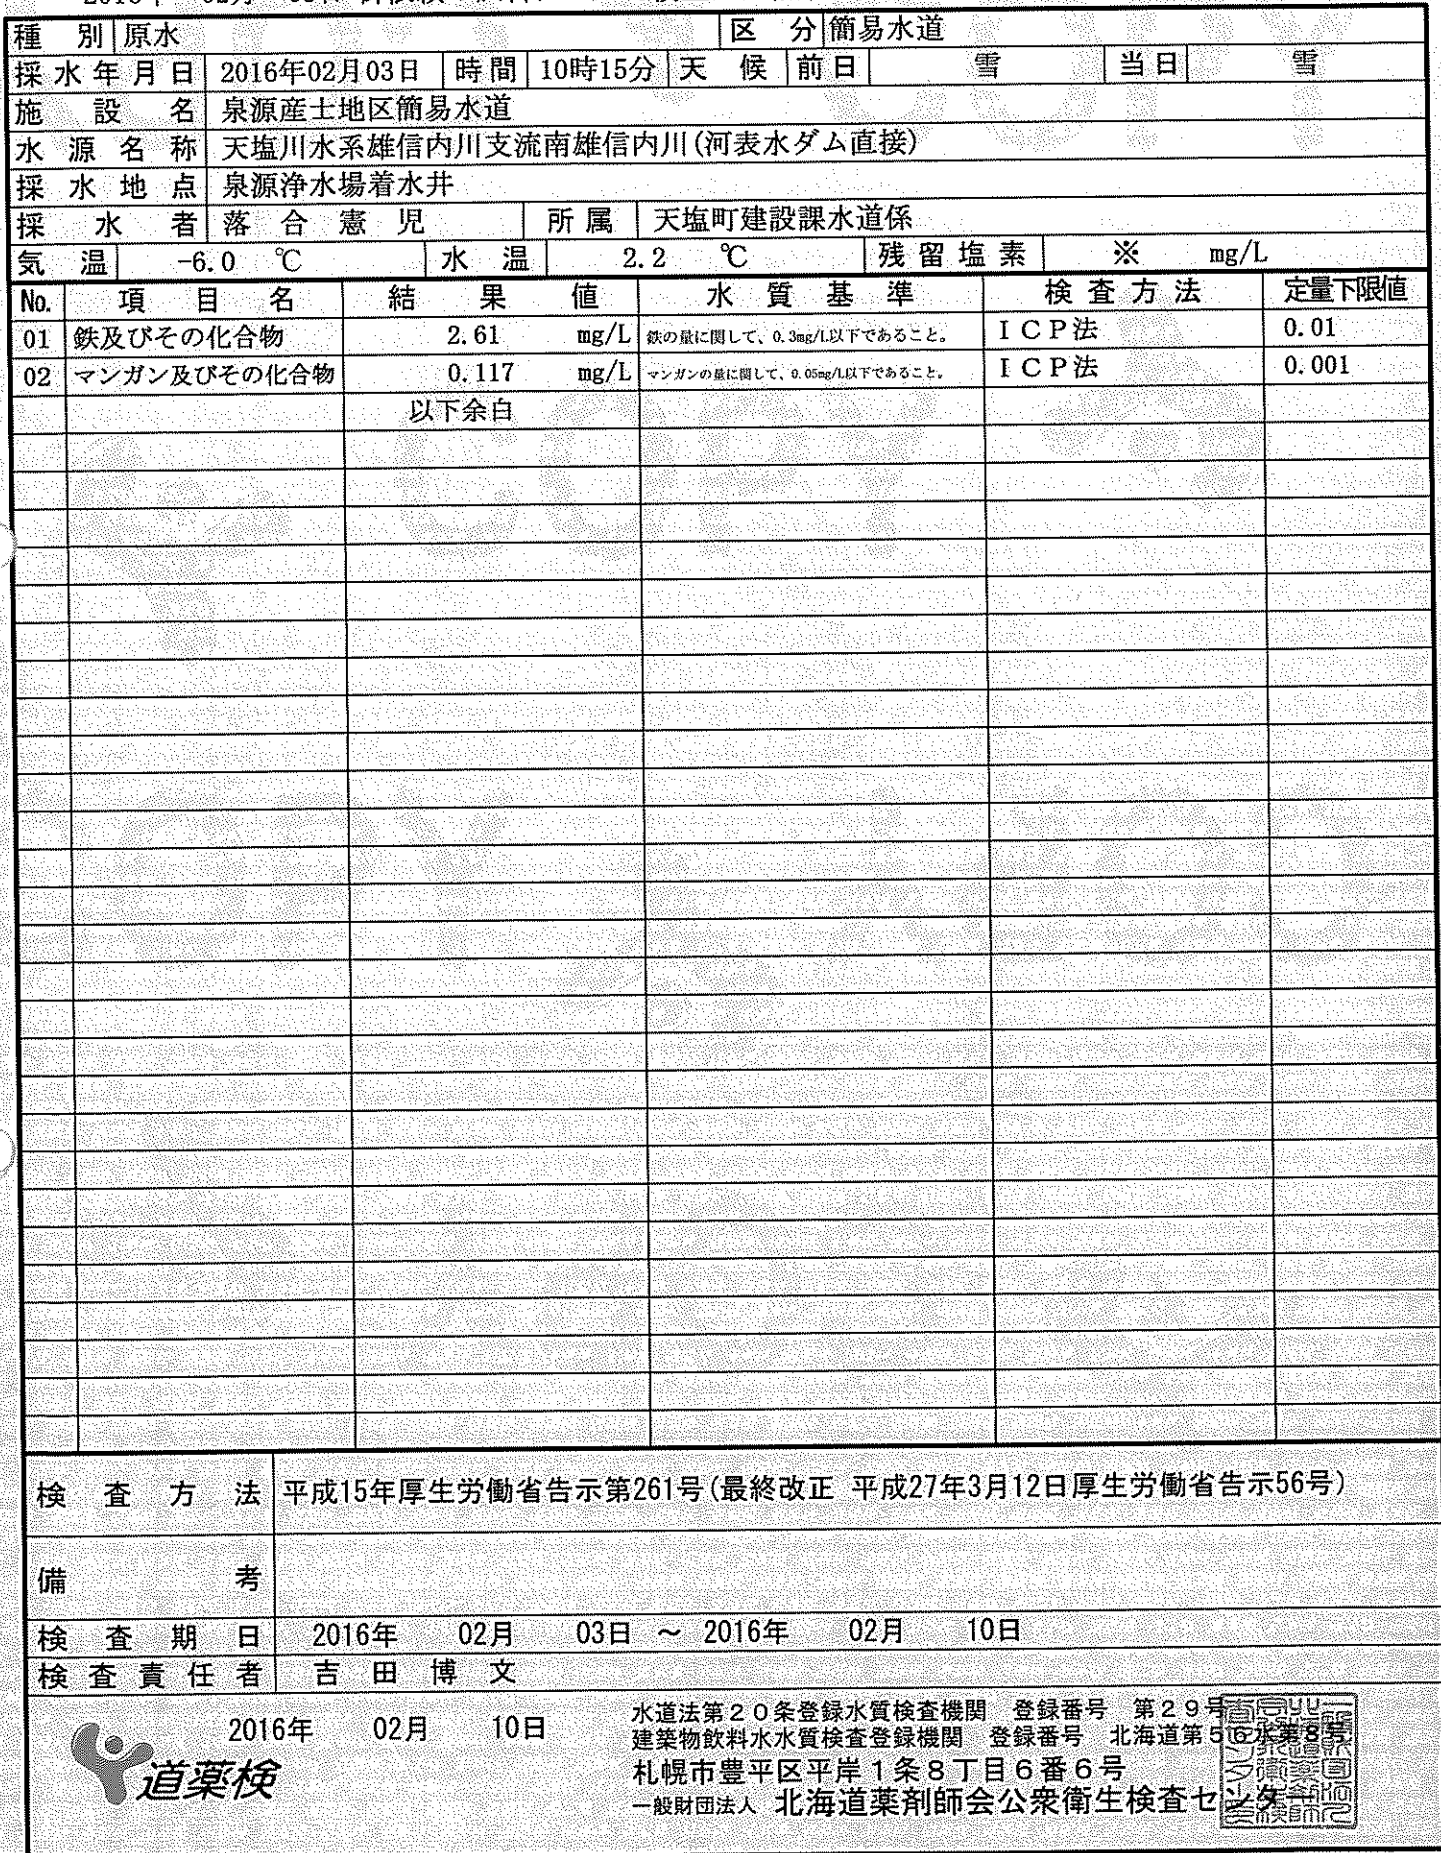 種別 原水 区分 簡易水道
採水年月日 2016年02月03日 時間 10時15分 天候 前日 雪 当日 雪
施設名 泉源産士地区簡易水道
水源名称 天塩川水系雄信内川支流南雄信内川(河表水ダム直接)
採水地点 泉源浄水場着水井
採水者 落合憲児 所属 天塩町建設課水道係
気温 -6.0 ℃ 水温 2.2 ℃ 残留塩素 ※ mg/L
No. 項目名 結果値 水質基準 検査方法 定量下限値
01 鉄及びその化合物 2.61 mg/L 鉄の量に関して、0.3mg/L以下であること。 ICP法 0.01
02 マンガン及びその化合物 0.117 mg/L マンガンの量に関して、0.05mg/L以下であること。 ICP法 0.001
以下余白
検査方法 平成15年厚生労働省告示第261号(最終改正 平成27年3月12日厚生労働省告示56号)
備考
検査期日 2016年 02月 03日 ～ 2016年 02月 10日
検査責任者 吉田博文
水道法第20条登録水質検査機関 登録番号 第29号
2016年 02月 10日
建築物飲料水水質検査登録機関 登録番号 北海道第56水第8号
道薬検
札幌市豊平区平岸1条8丁目6番6号
一般財団法人 北海道薬剤師会公衆衛生検査センター